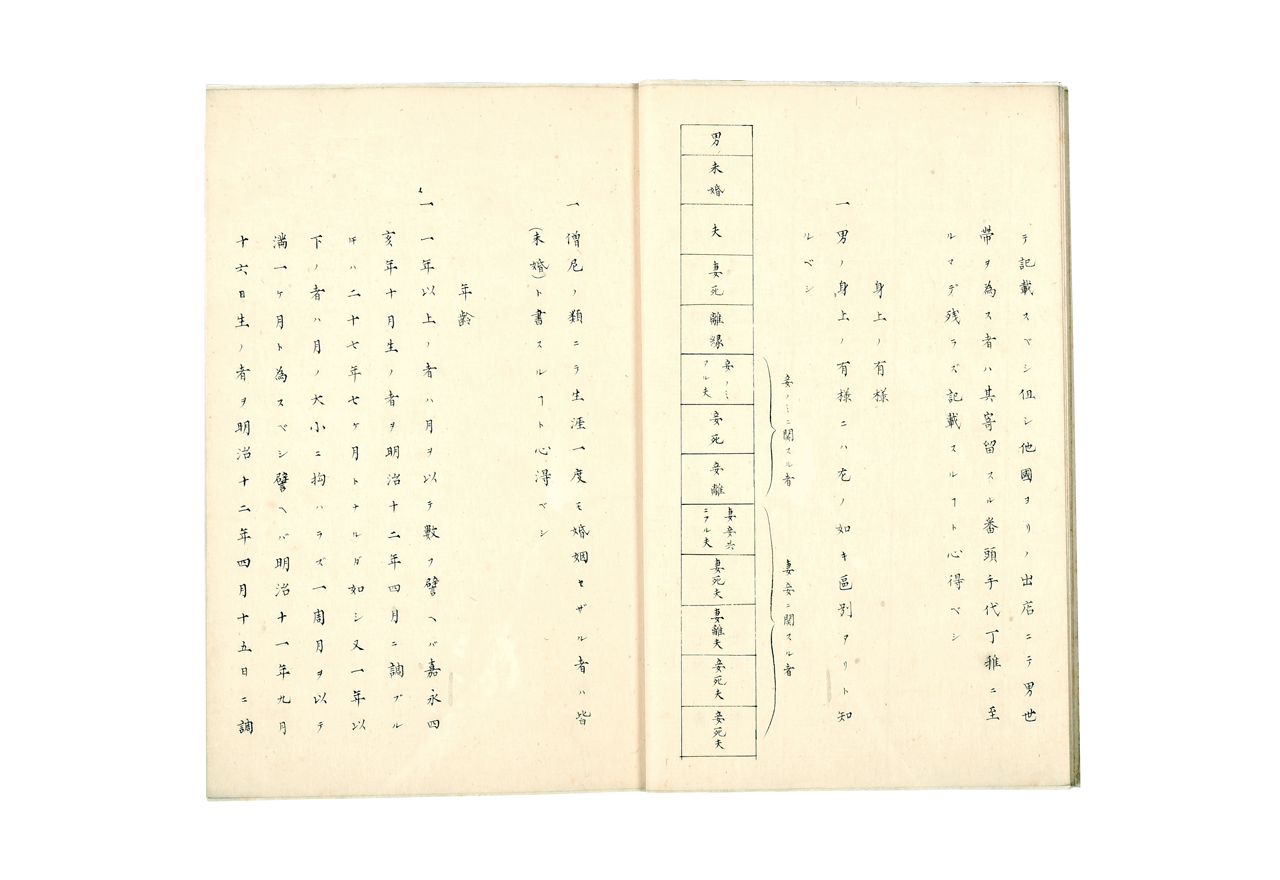 テ記載スベシ但シ他國ヨリノ出店ニテ男世
帶ヲ為ス者ハ其寄留スル番頭手代丁稚ニ至
ルマデ残ラズ記載スルヿト心得ベシ
身上ノ有様
一男ノ身上ノ有様ニハ左ノ如キ區別アリト知
ルベシ
妾ノミニ関スル者
妻妾ニ関スル者
男
未婚
夫
妻死
離縁
妾ノミ
アル夫
妾死
妾離
妻妾共
ニアル夫
妻死夫
妻離夫
妾死夫
妾死夫
一僧尼ノ類ニテ生涯一度モ婚姻セザル者ハ皆
(未婚)ト書スルヿト心得ベシ
年齢
一一年以上ノ者ハ月ヲ以テ數フ譬ヘバ嘉永四
亥年十月生ノ者ヲ明治十二年四月ニ調ブル
キハ二十七年七ケ月トナルガ如シ又一年以
下ノ者ハ月ノ大小ニ拘ハラズ一周月ヲ以テ
満一ケ月ト為スベシ譬ヘバ明治十一年九月
十六日生ノ者ヲ明治十二年四月十五日ニ調